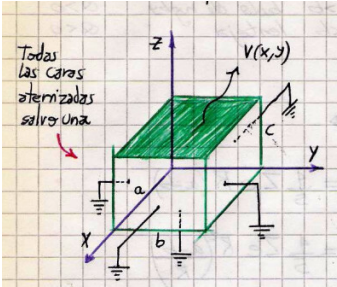 Todas
las caras
aterrizadas
salvo una
Z
V(x,y)
c
Y
a
X
b